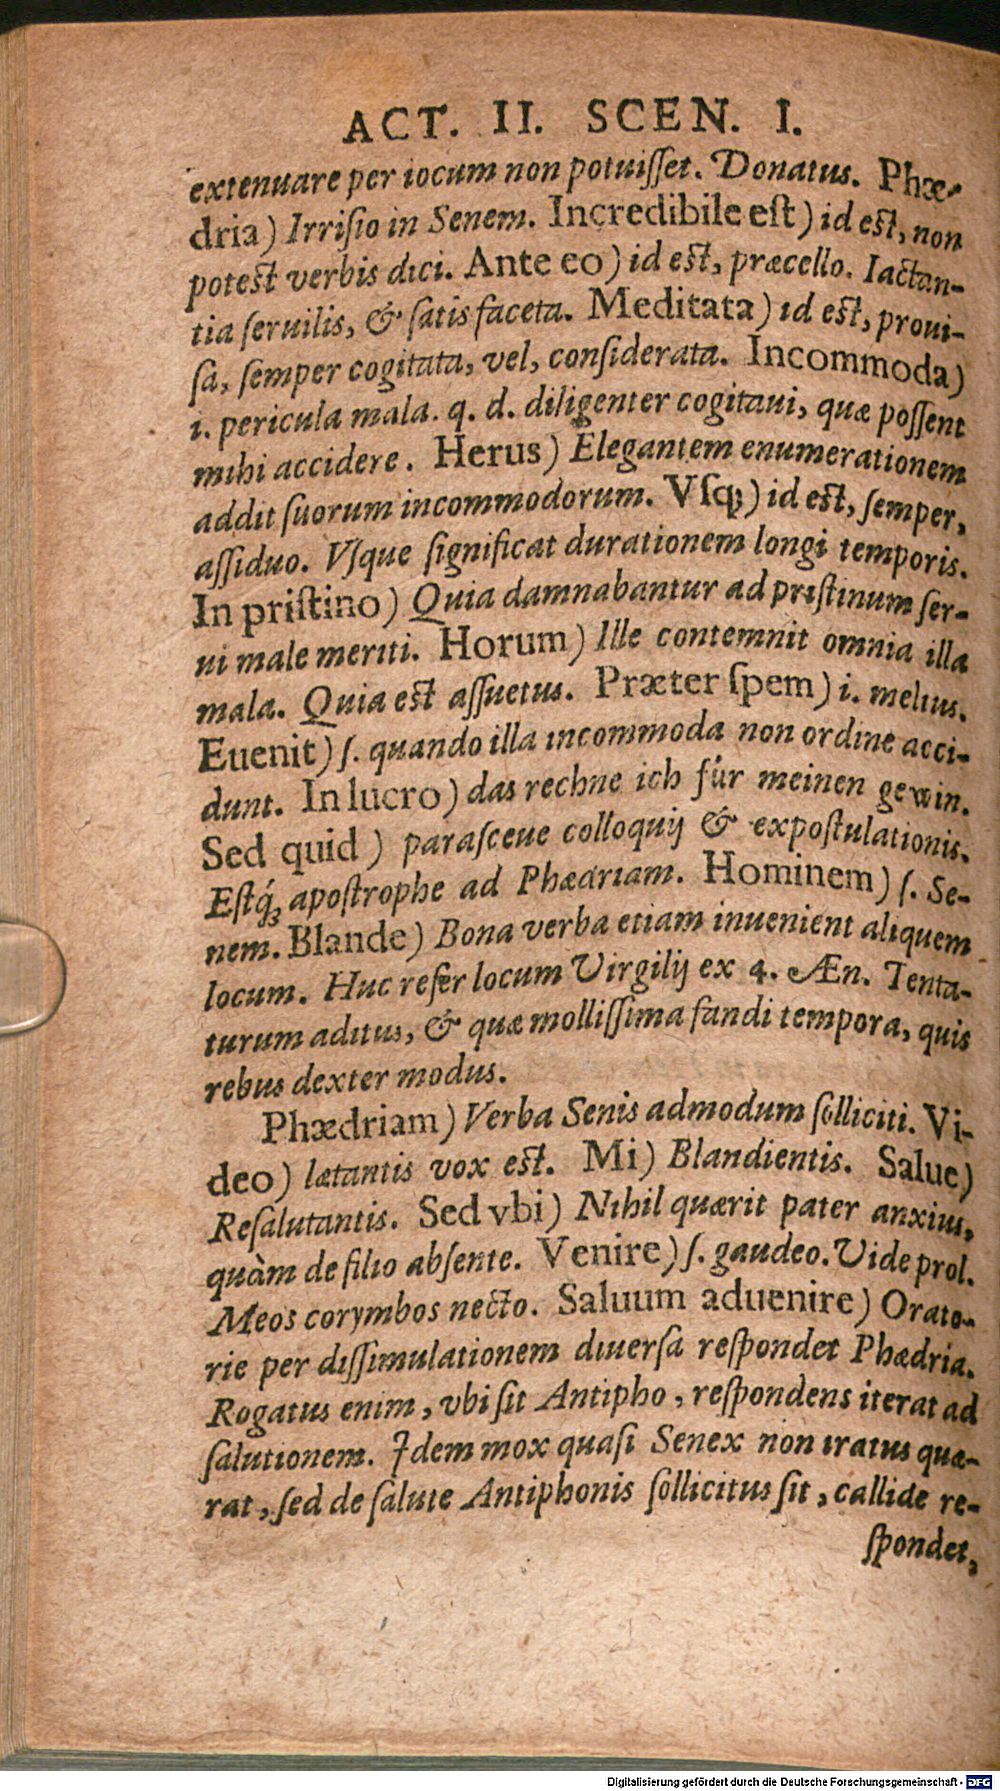 ACT. II. SCEN. I.
extenuare per iocum non potuiſſet. Donatus. Phæ-
dria) Irriſio in Senem. Incredibile eſt) id eſt, non
poteſt verbis dici. Ante eo) id eſt, præcello. Iactan-
tia ſeruilis, & ſatis faceta. Meditata) id eſt, proui-
ſa, ſemper cogitata, vel, conſiderata. Incommoda)
i. pericula mala. q. d. diligenter cogitaui, quæ poſſent
mihi accidere. Herus) Elegantem enumerationem
addit ſuorum incommodorum. Vſq;) id eſt, ſemper,
aſſiduo. Vſque ſignificat durationem longi temporis.
In priſtino) Quia damnabantur ad priſtinum ſer-
ui male meriti. Horum) Ille contemnit omnia illa
mala. Quia eſt aſſuetus. Præter ſpem) i. melius.
Euenit) ſ. quando illa incommoda non ordine acci-
dunt. In lucro) das rechne ich für meinen gewin.
Sed quid) paraſceue colloquij & expoſtulationis.
Eſtq́; apoſtrophe ad Phædriam. Hominem) ſ. Se-
nem. Blande) Bona verba etiam inuenient aliquem
locum. Huc refer locum Virgilij ex 4. Æn. Tenta-
turum aditus, & quæ molliſſima fandi tempora, quis
rebus dexter modus.
Phædriam) Verba Senis admodum ſolliciti. Vi-
deo) lætantis vox eſt. Mi) Blandientis. Salue)
Reſalutantis. Sed vbi) Nihil quærit pater anxius,
quàm de filio abſente. Venire) ſ. gaudeo. Vide prol.
Meos corymbos necto. Saluum aduenire) Orato-
rie per diſſimulationem diuerſa reſpondet Phædria.
Rogatus enim, vbi ſit Antipho, reſpondens iterat ad
ſalutionem. Idem mox quaſi Senex non iratus quæ-
rat, ſed de ſalute Antiphonis ſollicitus ſit, callide re-
ſpondet,
Digitalisierung gefördert durch die Deutsche Forschungsgemeinschaft - DFG